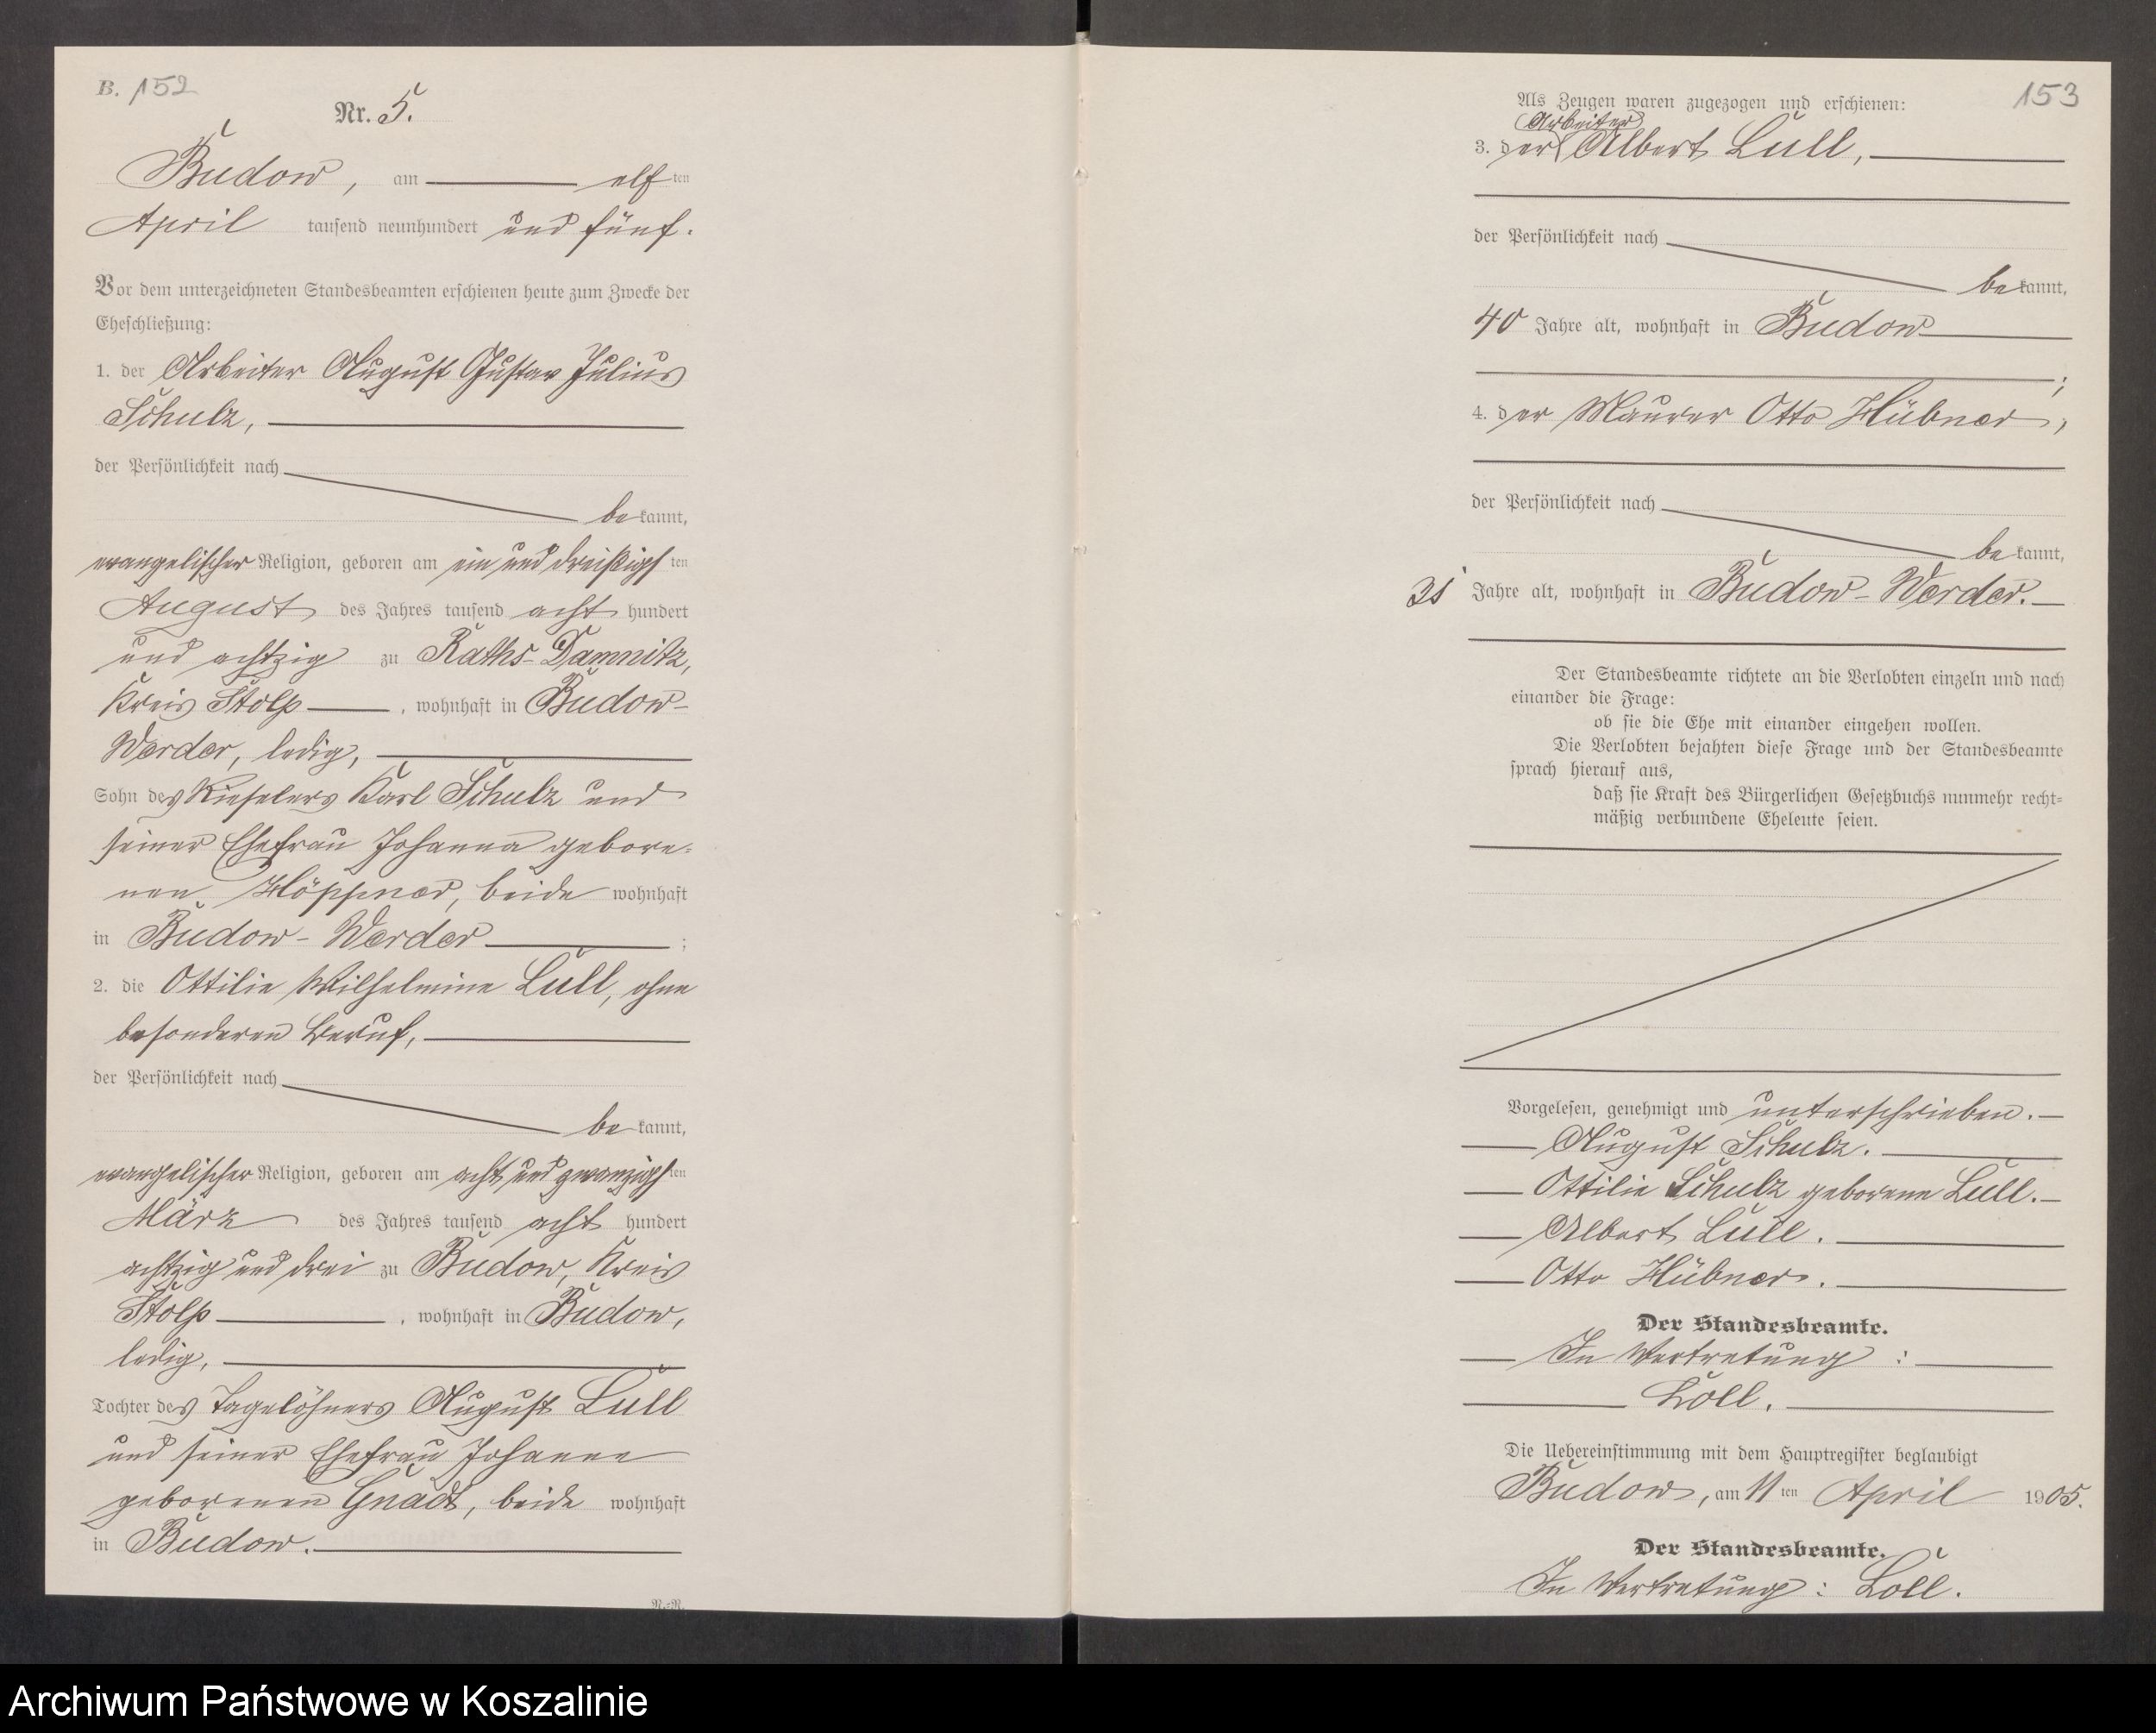 B. 152
Nr. 5.
Budow, am elf ten
April tausend neunhundert und fünf.
Vor dem unterzeichneten Standesbeamten erschienen heute zum Zwecke der
Eheschließung:
1. der Arbeiter August Gustav Julius
Schulz,
der Persönlichkeit nach
bekannt,
evangelischer Religion, geboren am ein und dreißigsten
August des Jahres tausend acht hundert
und achtzig zu Raths-Damnitz,
Kreis Stolp, wohnhaft in Budow-
Werder, ledig,
Sohn des Rieselers Karl Schulz und
seiner Ehefrau Johanna gebore-
nen Höppner, beide wohnhaft
in Budow-Werder;
2. die Ottilie Wilhelmine Lüll, ohne
besonderen Beruf,
der Persönlichkeit nach
bekannt,
evangelischer Religion, geboren am acht und zwanzigsten
März des Jahres tausend acht hundert
achtzig und drei zu Budow, Kreis
Stolp, wohnhaft in Budow,
ledig,
Tochter des Tagelöhners August Lüll
und seiner Ehefrau Johanne
geborenen Gnadt, beide wohnhaft
in Budow.
N.-R.
153
Als Zeugen waren zugezogen und erschienen:
Arbeiter
3. der Albert Lüll,
der Persönlichkeit nach
bekannt,
40 Jahre alt, wohnhaft in Budow
;
4. der Maurer Otto Hübner,
der Persönlichkeit nach
bekannt,
Jahre alt, wohnhaft in Budow-Werder.
Der Standesbeamte richtete an die Verlobten einzeln und nach
einander die Frage:
ob sie die Ehe mit einander eingehen wollen.
Die Verlobten bejahten diese Frage und der Standesbeamte
sprach hierauf aus,
daß sie Kraft des Bürgerlichen Gesetzbuchs nunmehr recht-
mäßig verbundene Eheleute seien.
Vorgelesen, genehmigt und unterschrieben.
August Schulz.
Ottilie Schulz geborene Lüll.
Albert Lüll.
Otto Hübner.
Der Standesbeamte.
In Vertretung:
Loll.
Die Uebereinstimmung mit dem Hauptregister beglaubigt
Budow, am 11 ten April 1905.
Der Standesbeamte.
In Vertretung: Loll.
Archiwum Państwowe w Koszalinie